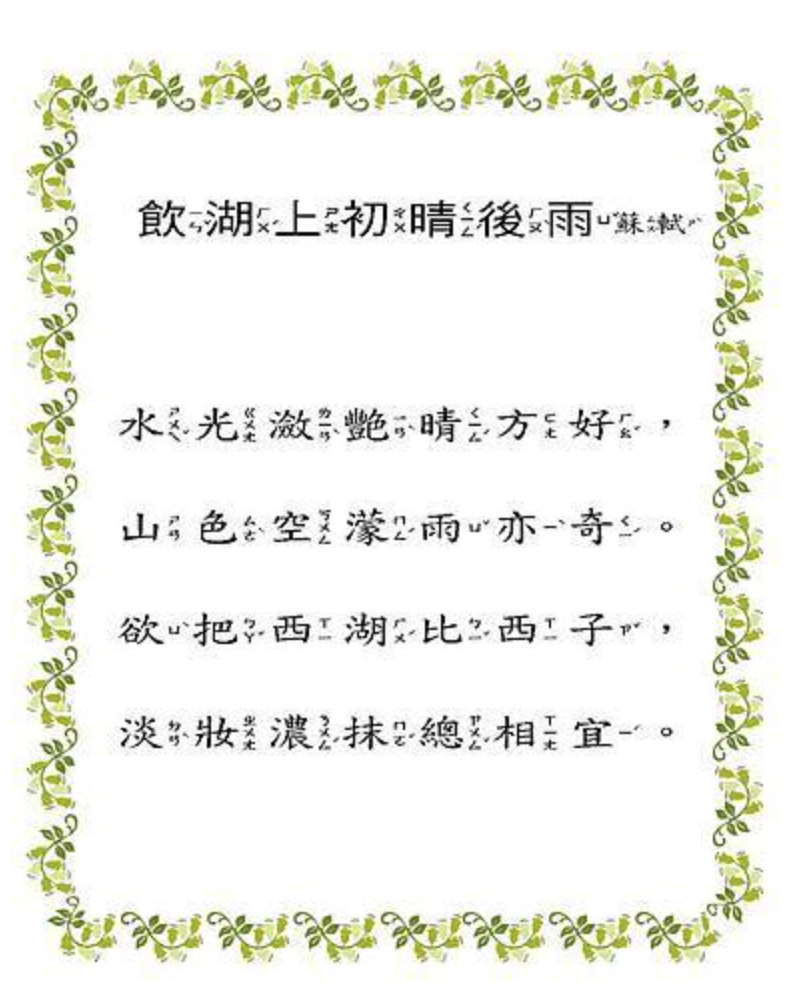 飲湖上初晴後雨 蘇軾
水光瀲艷晴方好，
山色空濛雨亦奇。
欲把西湖比西子，
淡妝濃抹總相宜。